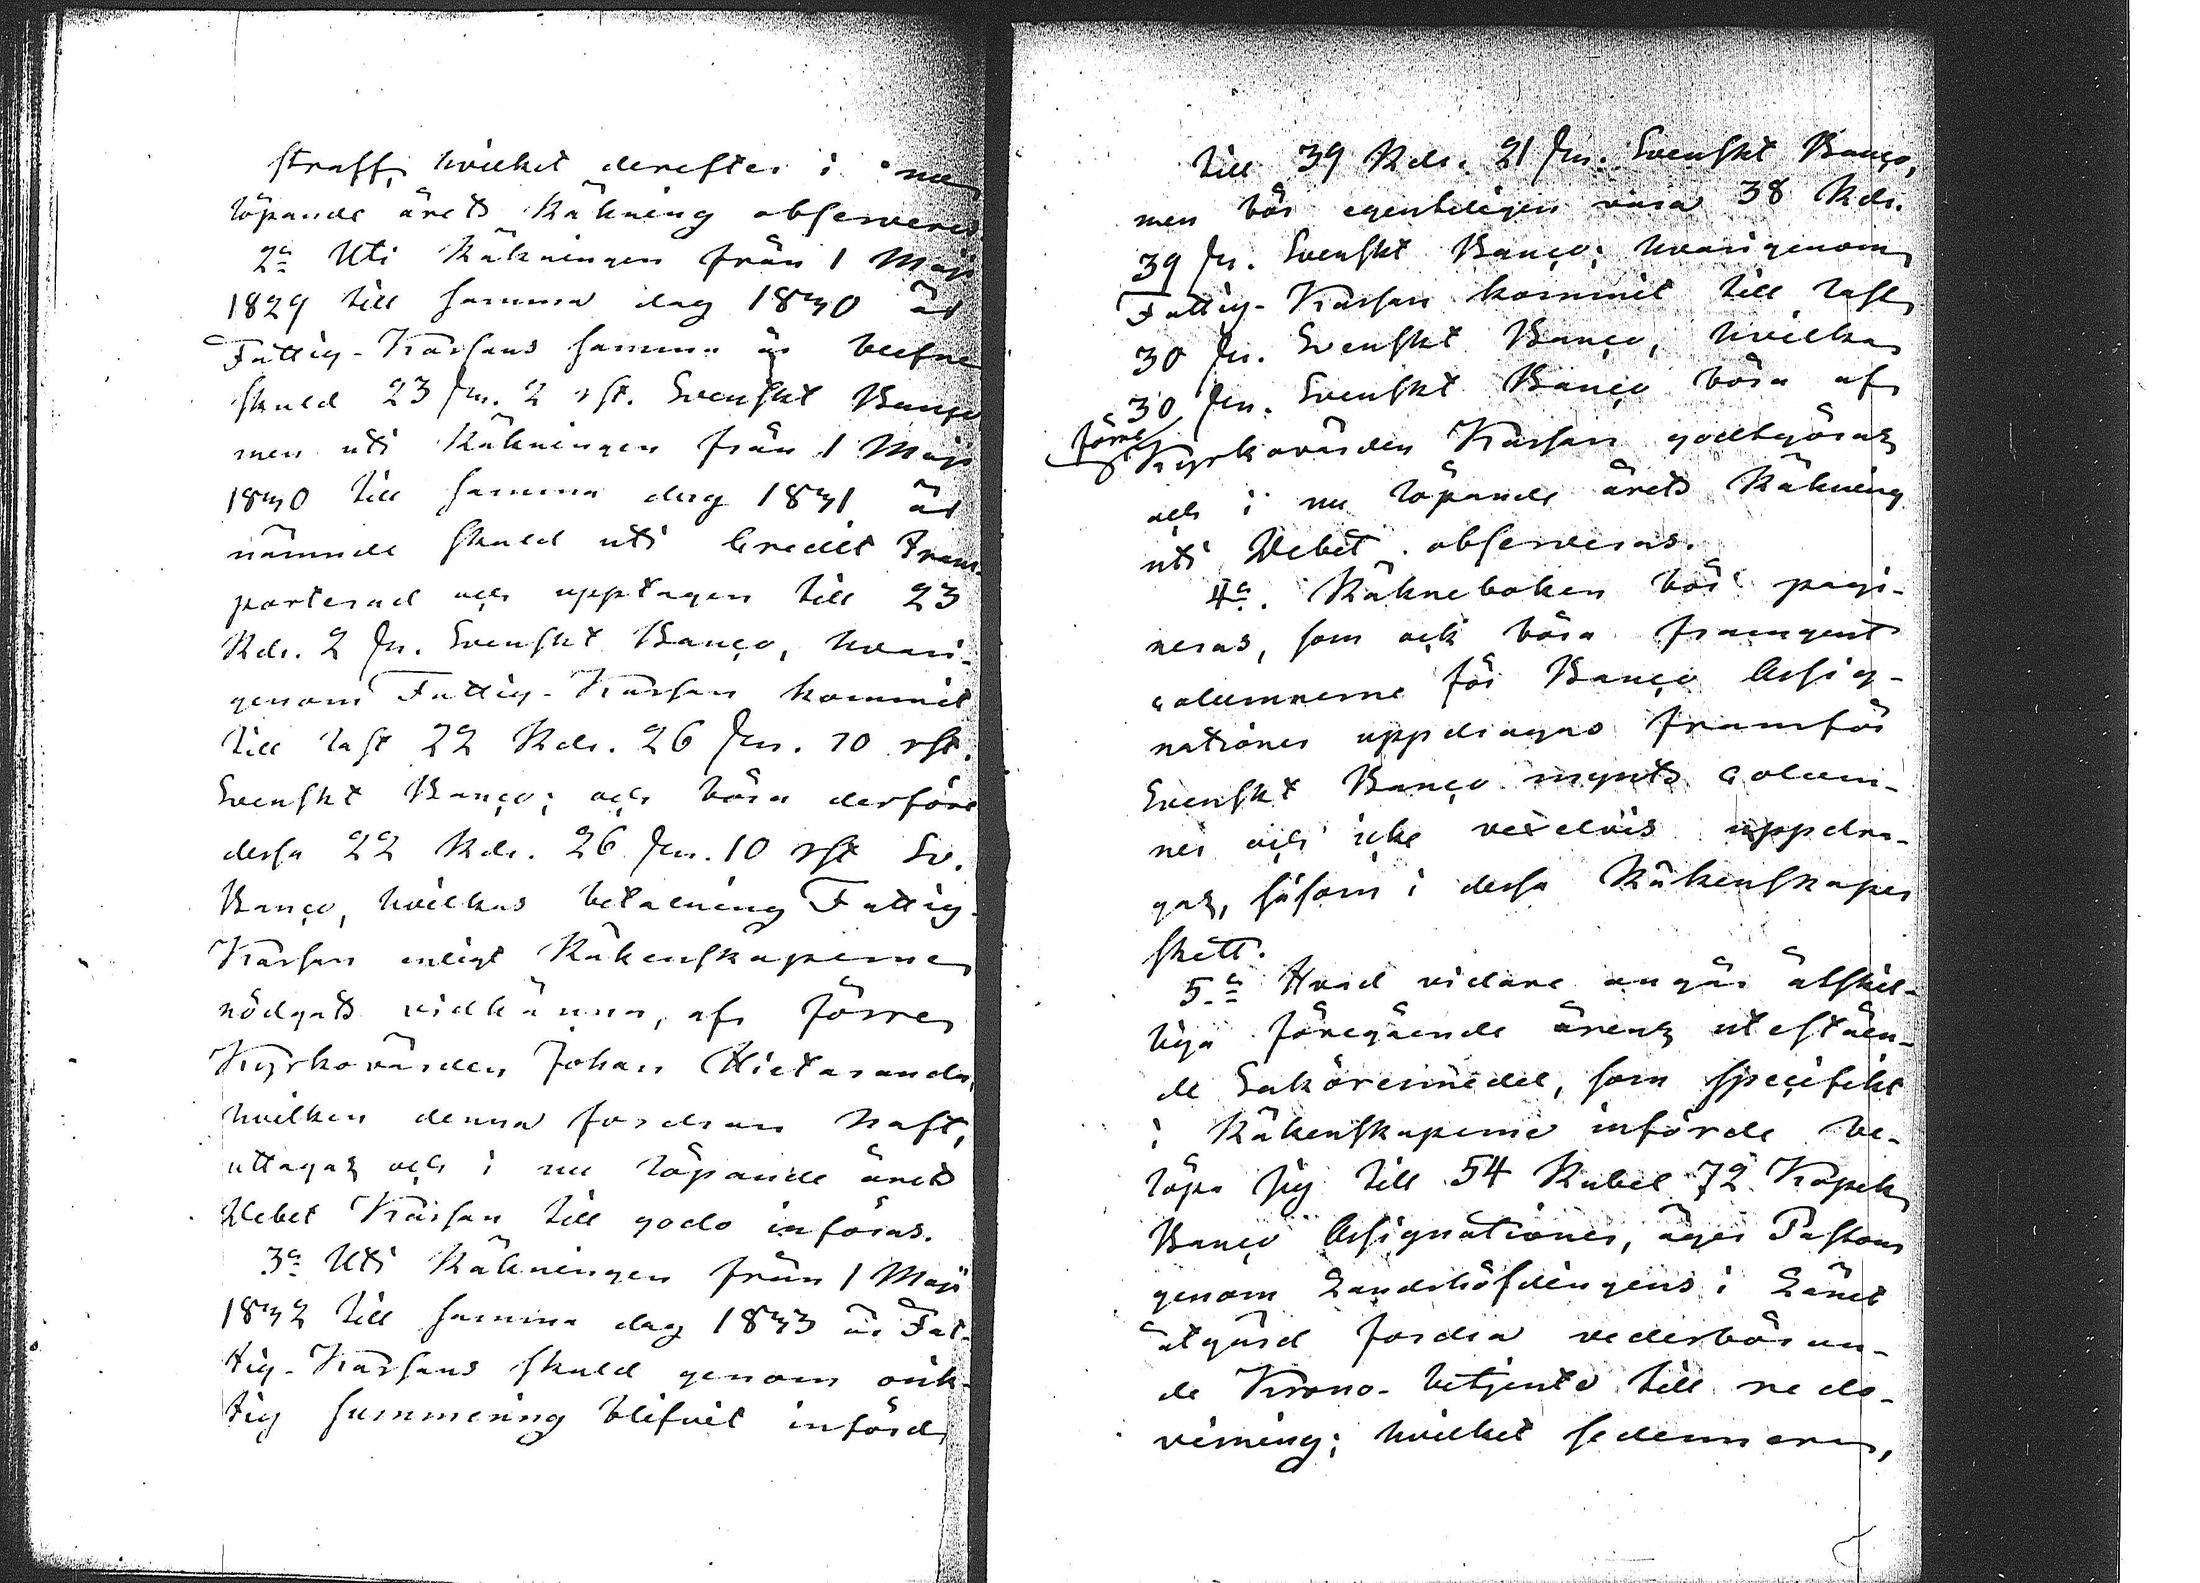 straff, hvilket derefter i nu
löpande årets Räkning observeras.
2a Uti Räkningen från 1 Maji
1829 till samma dag 1830 är
Fattig-Kassans samma år blefne
skuld 23 sn. 2 rst. Svenskt Banço
men uti Räkningen från 1 Maji
1830 till samma dag 1831 är
nämnde skuld uti Credit Trans-
porterad och upptagen till 23
Rdr. 2 sn. Svenskt Banço, hvari-
genom Fattig-Kassan kommit
till last 22 Rdr. 26 sn. 10 rst.
Svenskt Banço; och böra derföre
dessa 22 Rdr. 26 sn. 10 rst Sv.
Banço, hvilkas betalning Fattig-
Kassan enligt Räkenskaperne
nödgats vidkänna, af förre
Kyrkovärden Johan Hietaranda,
hvilken denna fordran haft,
uttagas och i nu löpande årets
Debet Kassan till godo införas.
3a Uti Räkningen från 1 Maji
1832 till samma dag 1833 är Fat-
tig-Kassans skuld genom orik-
tig summering blifvit införd
till 39 Rdr. 21 sn. Svenskt Banço,
men bör egenteligen vara 38 Rdr.
39 sn. Svenskt Banço; hvarigenom
Fattig-Kassan kommit till last
30 sn. Svenskt Banço, hvilka
30 sn. Svenskt Banço böra af
förre Kyrkovärden Kassan godtgöras
och i nu löpande årets Räkning
uti Debet observeras.
4a. Räkneboken bör pagi-
neras, som ock böra framgent
columnerne för Banço Assig-
nationer uppdragas framför
Svenskt Banço mynts colum-
ner och icke vexelvis uppdra-
gas, såsom i dessa Räkenskaper
skett.
5a Hvad vidare angår åtskil-
liga föregående årens utestäen-
de Saköresmedel, som specifikt
i Räkenskaperne införde be-
löpa sig till 54 Rubel 72 Kopek
Banço Assignationer, äger Pastorn
genom Landshöfdingens i Länet
åtgärd fordra vederböran-
de Krono-betjente till redo-
visning; hvilket sedermera,